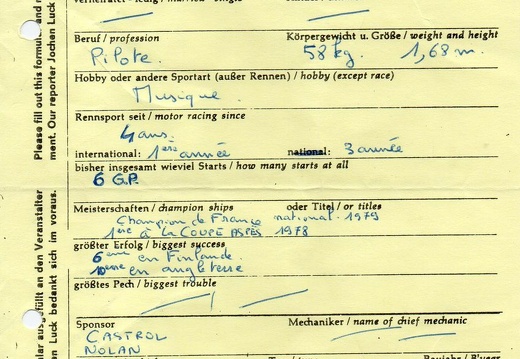 Beruf / profession Körpergewicht u. Größe / weight and height
Pilote. 58 kg. 1,68 m.
Hobby oder andere Sportart (außer Rennen) / hobby (except race)
Musique
Rennsport seit / motor racing since
4 ans.
international: 1ère année national: 3 année
bisher insgesamt wieviel Starts / how many starts at all
6 G.P.
Meisterschaften / champion ships oder Titel / or titles
Champion de France national. 1979
1ère à la COUPE ASPES 1978
größter Erfolg / biggest success
6ème en Finlande.
10ème en angleterre
größtes Pech / biggest trouble
Sponsor Mechaniker / name of chief mechanic
CASTROL
NOLAN
Please fill out this formula and
ment. Our reporter Jochen Luck
ausgefüllt an den Veranstalter
Luck bedankt sich im voraus.